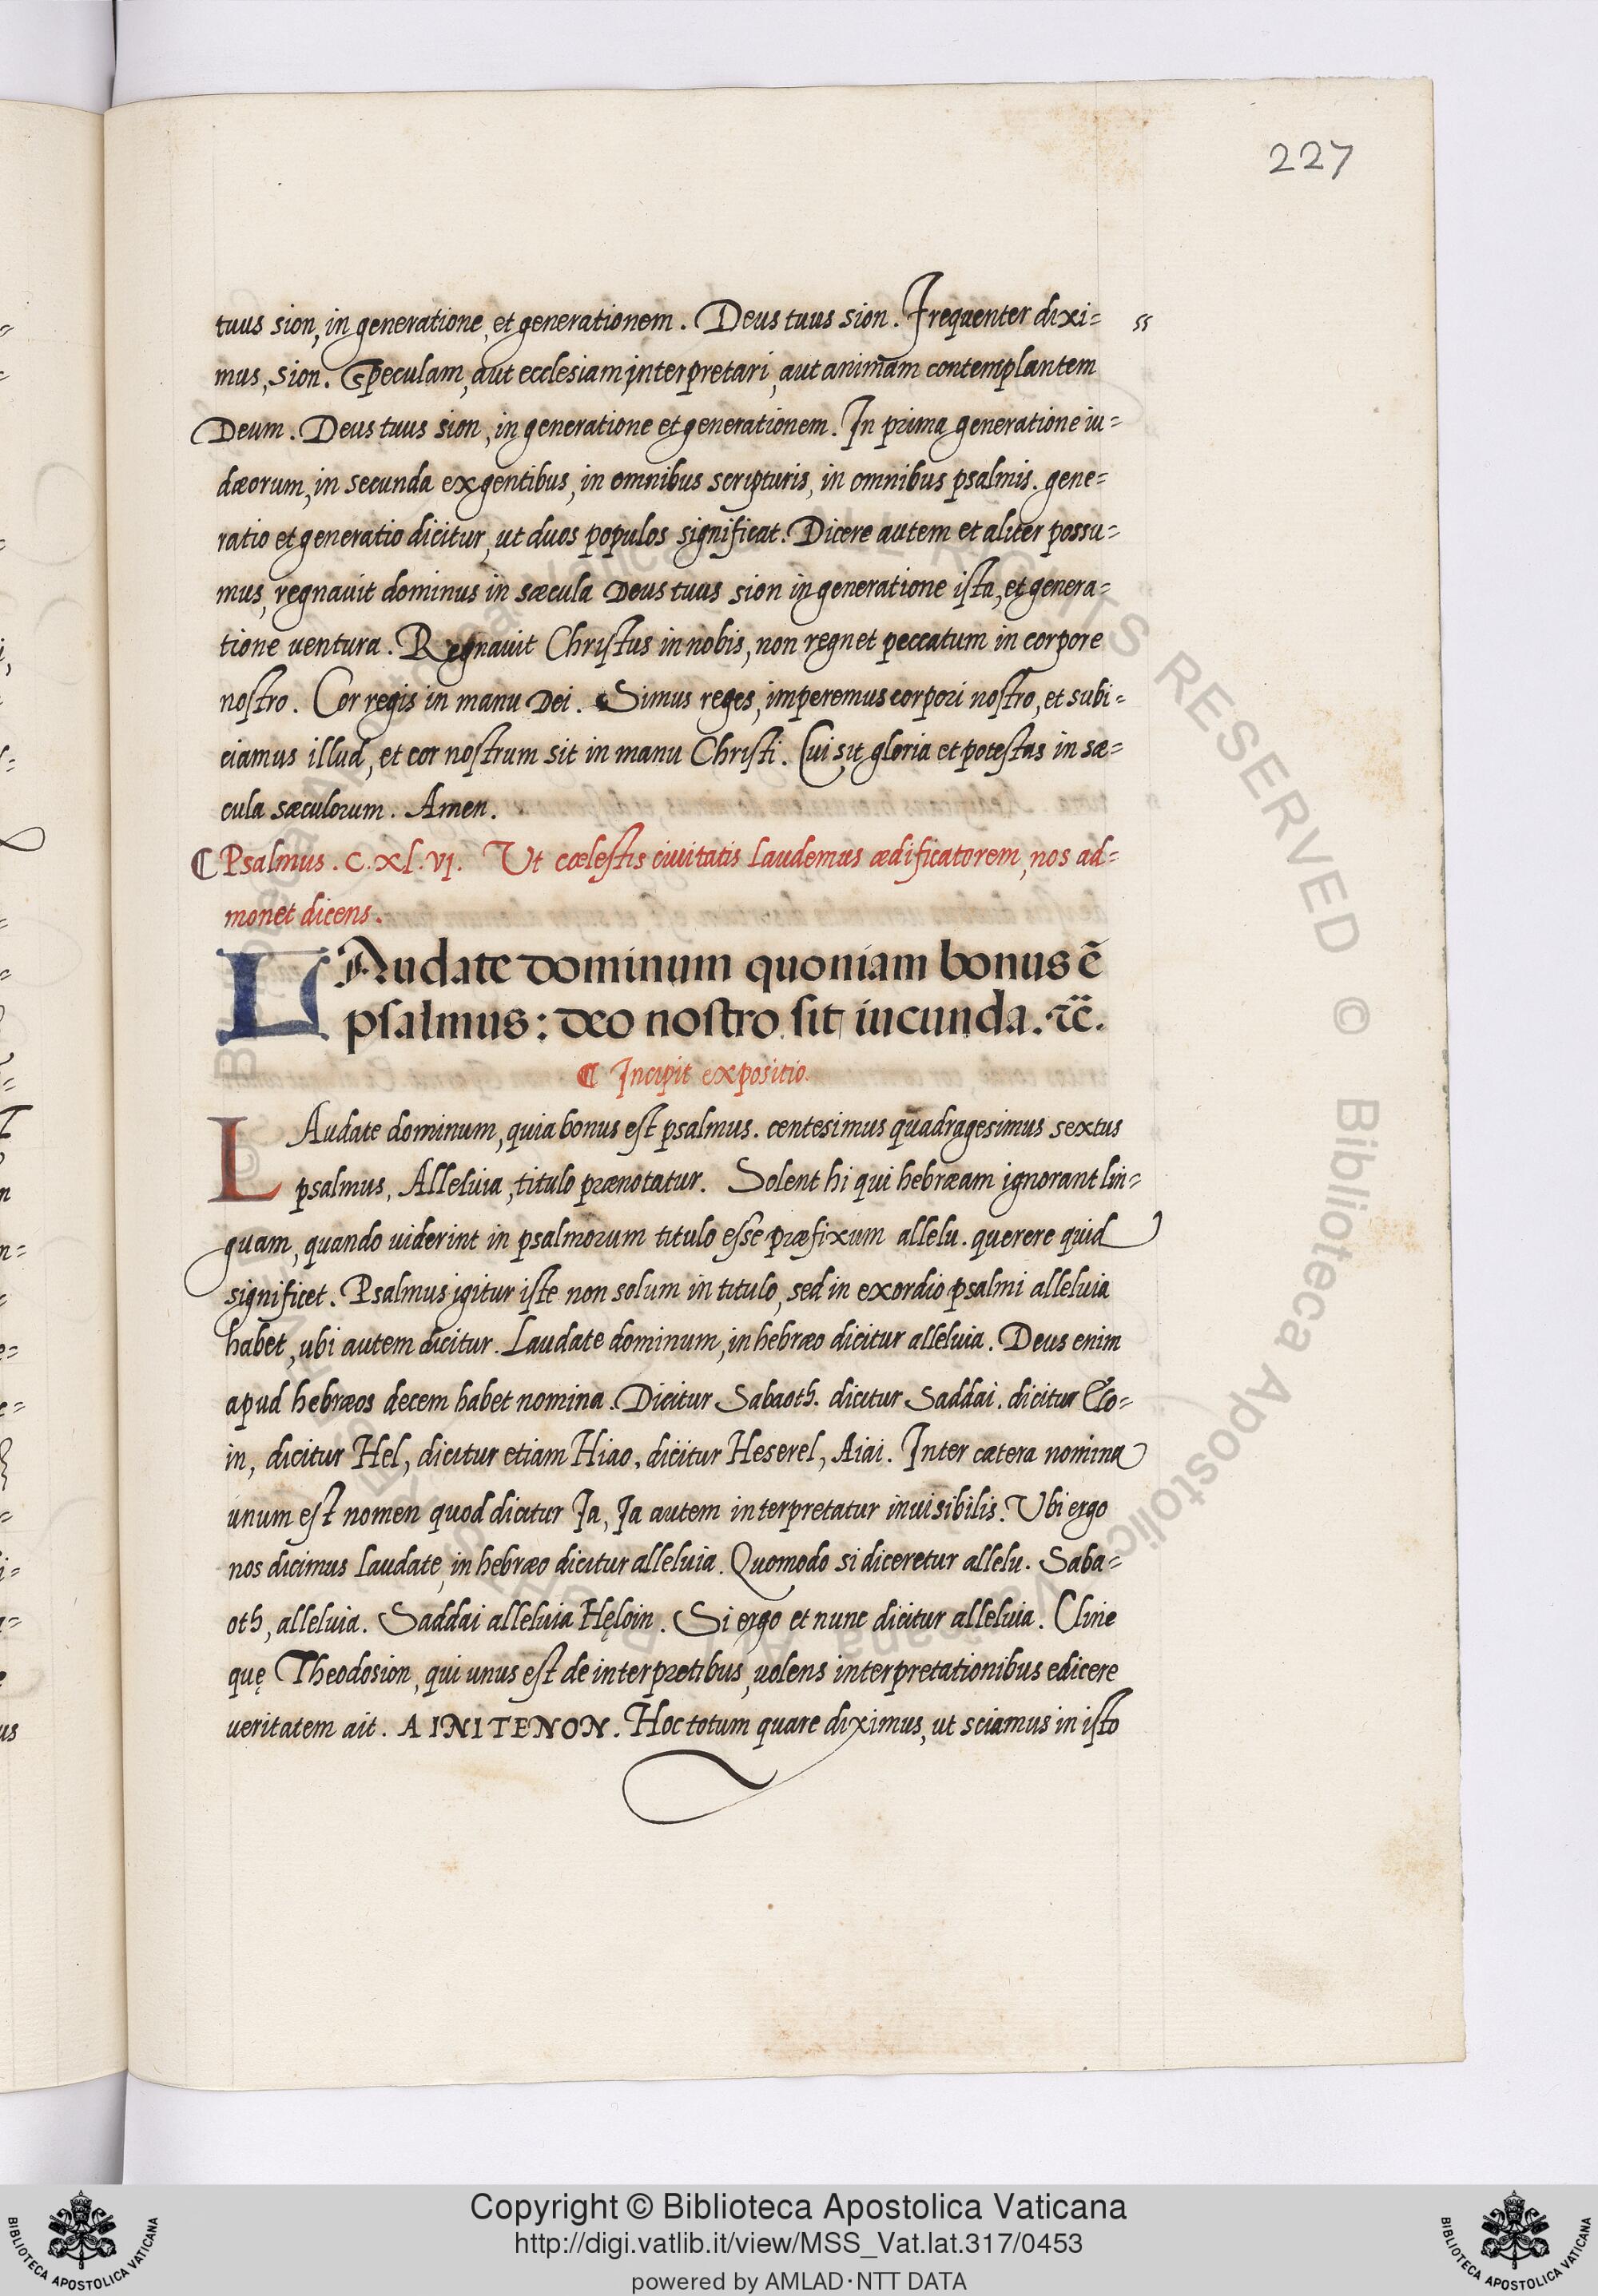 227
tuus sion, in generatione, et generationem. Deus tuus sion. Frequenter dixi= ss
mus, sion. Speculam, aut ecclesiam interpretari, aut animam contemplantem
Deum. Deus tuus sion, in generatione et generationem. In prima generatione iu=
dæorum, in secunda ex gentibus, in omnibus scripturis, in omnibus psalmis. gene=
ratio et generatio dicitur, ut duos populos significat. Dicere autem et aliter possu=
mus, regnauit dominus in sæcula Deus tuus sion in generatione ista, et genera=
tione uentura. Regnauit Christus in nobis, non regnet peccatum in corpore
nostro. Cor regis in manu Dei. Simus reges, imperemus corpori nostro, et subi=
ciamus illud, et cor nostrum sit in manu Christi. Cui sit gloria et potestas in sæ=
cula sæculorum. Amen.
¶ Psalmus. C.XL.VI. Ut cœlestis ciuitatis laudemus ædificatorem, nos ad=
monet dicens.
LAudate dominum quoniam bonus ē
psalmus: deo nostro sit iucunda. ⁊c̄.
¶ Incipit expositio.
LAudate dominum, quia bonus est psalmus. centesimus quadragesimus sextus
psalmus, Alleluia, titulo prænotatur. Solent hi qui hebræam ignorant lin=
guam, quando uiderint in psalmorum titulo esse præfixum allelu. querere quid
significet. Psalmus igitur iste non solum in titulo, sed in exordio psalmi alleluia
habet, ubi autem dicitur. Laudate dominum, in hebræo dicitur alleluia. Deus enim
apud hebræos decem habet nomina. Dicitur Sabaoth. dicitur Saddai. dicitur Elo=
in, dicitur Hel, dicitur etiam Hiao, dicitur Heserel, Aiai. Inter cætera nomina
unum est nomen quod dicitur Ia, Ia autem interpretatur inuisibilis. Ubi ergo
nos dicimus laudate, in hebræo dicitur alleluia. Quomodo si diceretur allelu. Saba=
oth, alleluia. Saddai alleluia Hęloin. Si ergo et nunc dicitur alleluia. Cline
quę Theodosion, qui unus est de interpretibus, uolens interpretationibus edicere
ueritatem ait. A INITENON. Hoc totum quare diximus, ut sciamus in isto
Copyright © Biblioteca Apostolica Vaticana
http://digi.vatlib.it/view/MSS_Vat.lat.317/0453
powered by AMLAD·NTT DATA
BIBLIOTECA APOSTOLICA VATICANA
BIBLIOTECA APOSTOLICA VATICANA